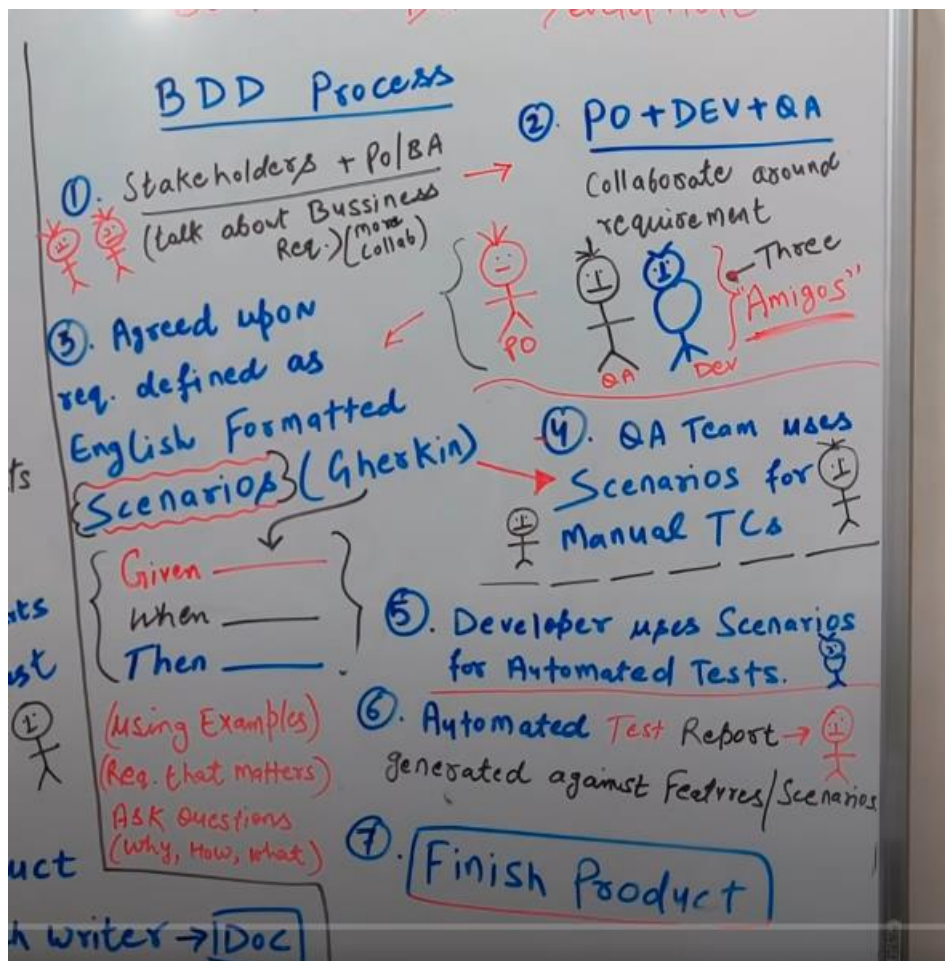 BDD Process
①. Stakeholders + PO/BA
(talk about Bussiness
Req.) (more
collab)
②. PO+DEV+QA
Collaborate around
requirement
PO
QA
Dev
Three
"Amigos"
③. Agreed upon
req. defined as
English Formatted
Scenarios (Gherkin)
Given
When
Then
(using Examples)
(Req. that matters)
ASK Questions
(Why, How, What)
④. QA Team uses
Scenarios for
Manual TCs
⑤. Developer uses Scenarios
for Automated Tests.
⑥. Automated Test Report →
generated against Features/Scenarios
⑦. Finish Product
ts
sts
st
uct
h writer → Doc